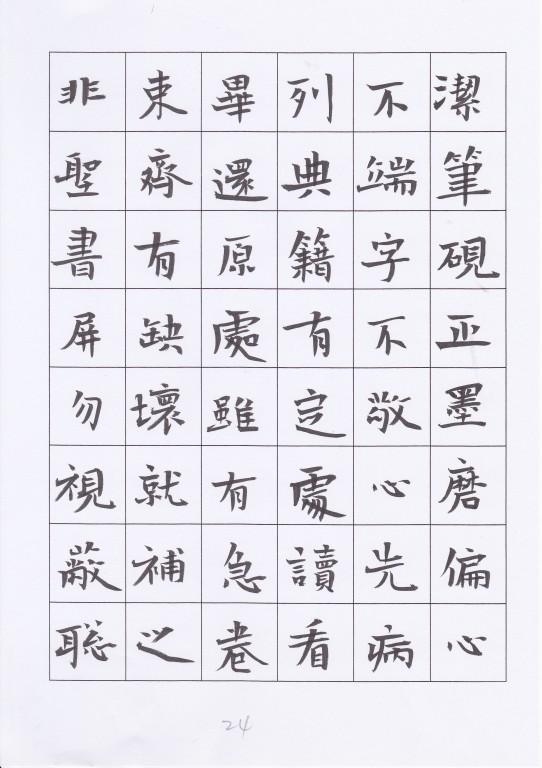 潔筆硯正墨磨偏心
不端字不敬心先病
列典籍有定處讀看
畢還原處雖有急卷
束齊有缺壞就補之
非聖書屏勿視蔽聡
24